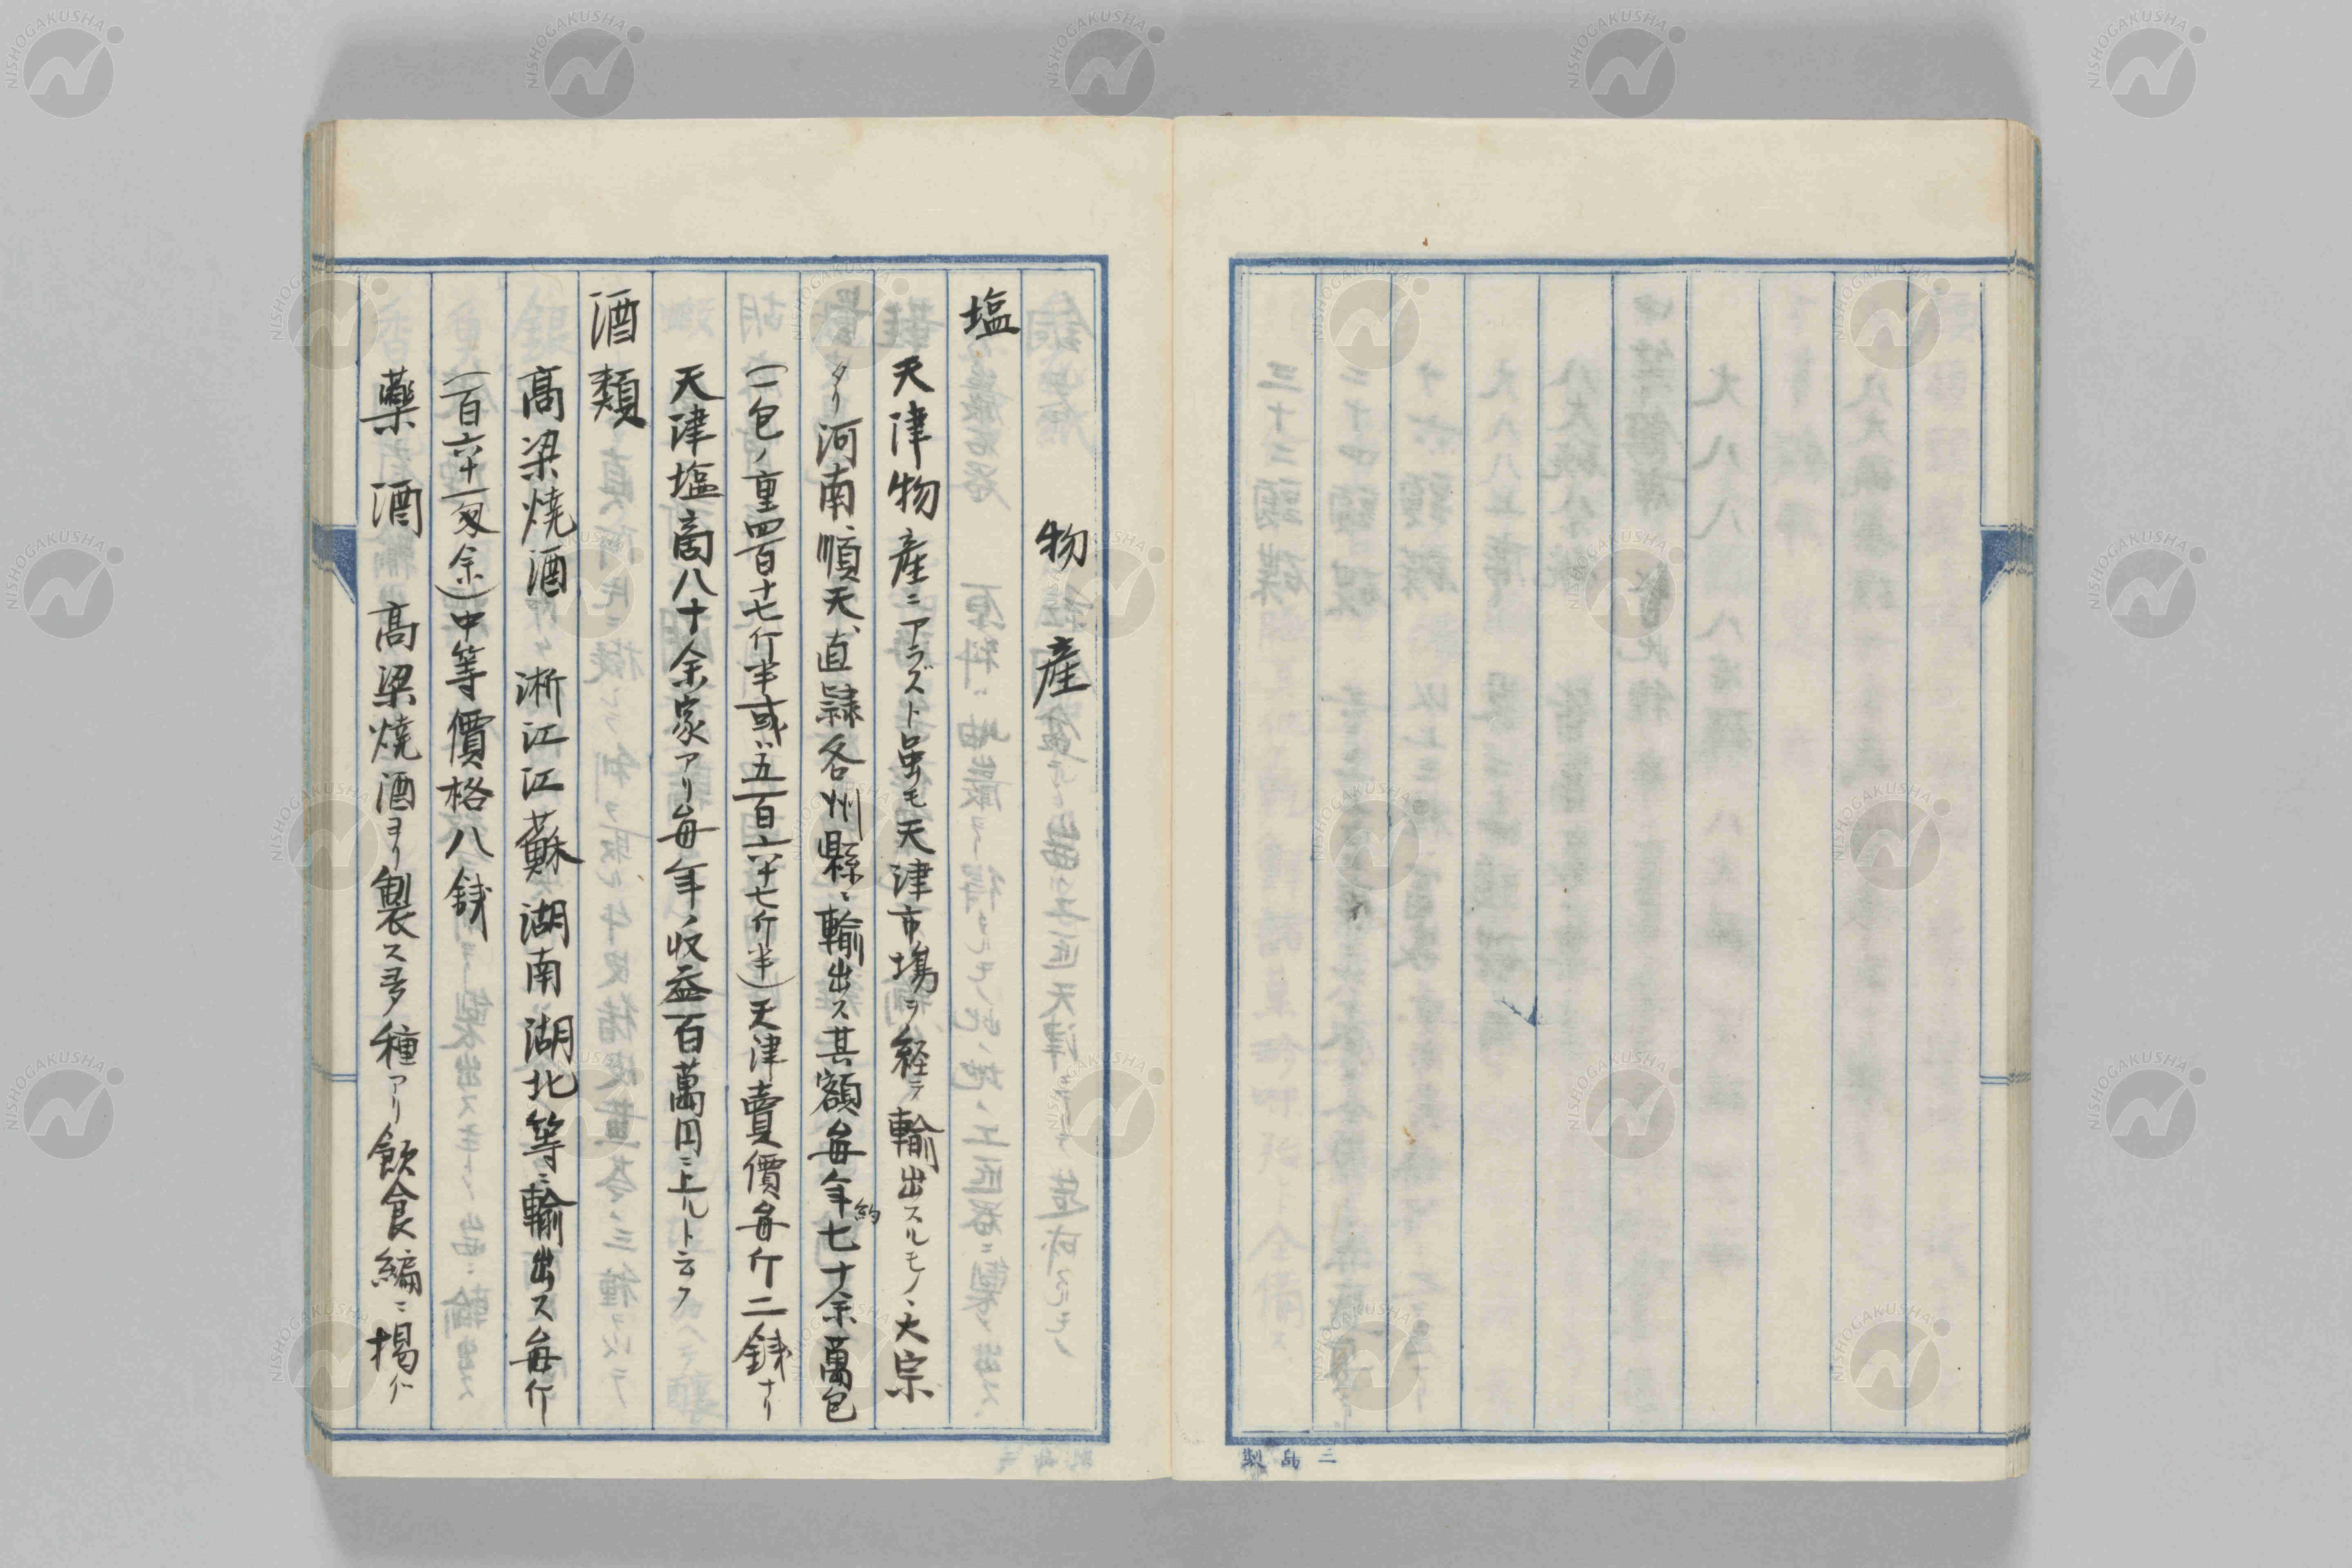 物産
塩
天津物産ニアラズト虽モ天津市塲ヲ経テ輸出スルモノヽ大宗
タリ河南、順天、直隷各州縣ニ輸出ス其額毎年約七十余萬包
(一包ノ重四百十七斤半或ハ五百六十七斤半)天津賣價毎斤二銭ナリ
天津塩商八十余家アリ毎年ノ收益一百萬円ニ上ルト云フ
酒類
高梁焼酒 淅江江蘇湖南湖北等ニ輸出ス毎斤
(百六十匁余)中等價格八銭
藥酒 高梁焼酒ヨリ製ス多種アリ飲食編ニ掲グ
三島製
NISHOGAKUSHA